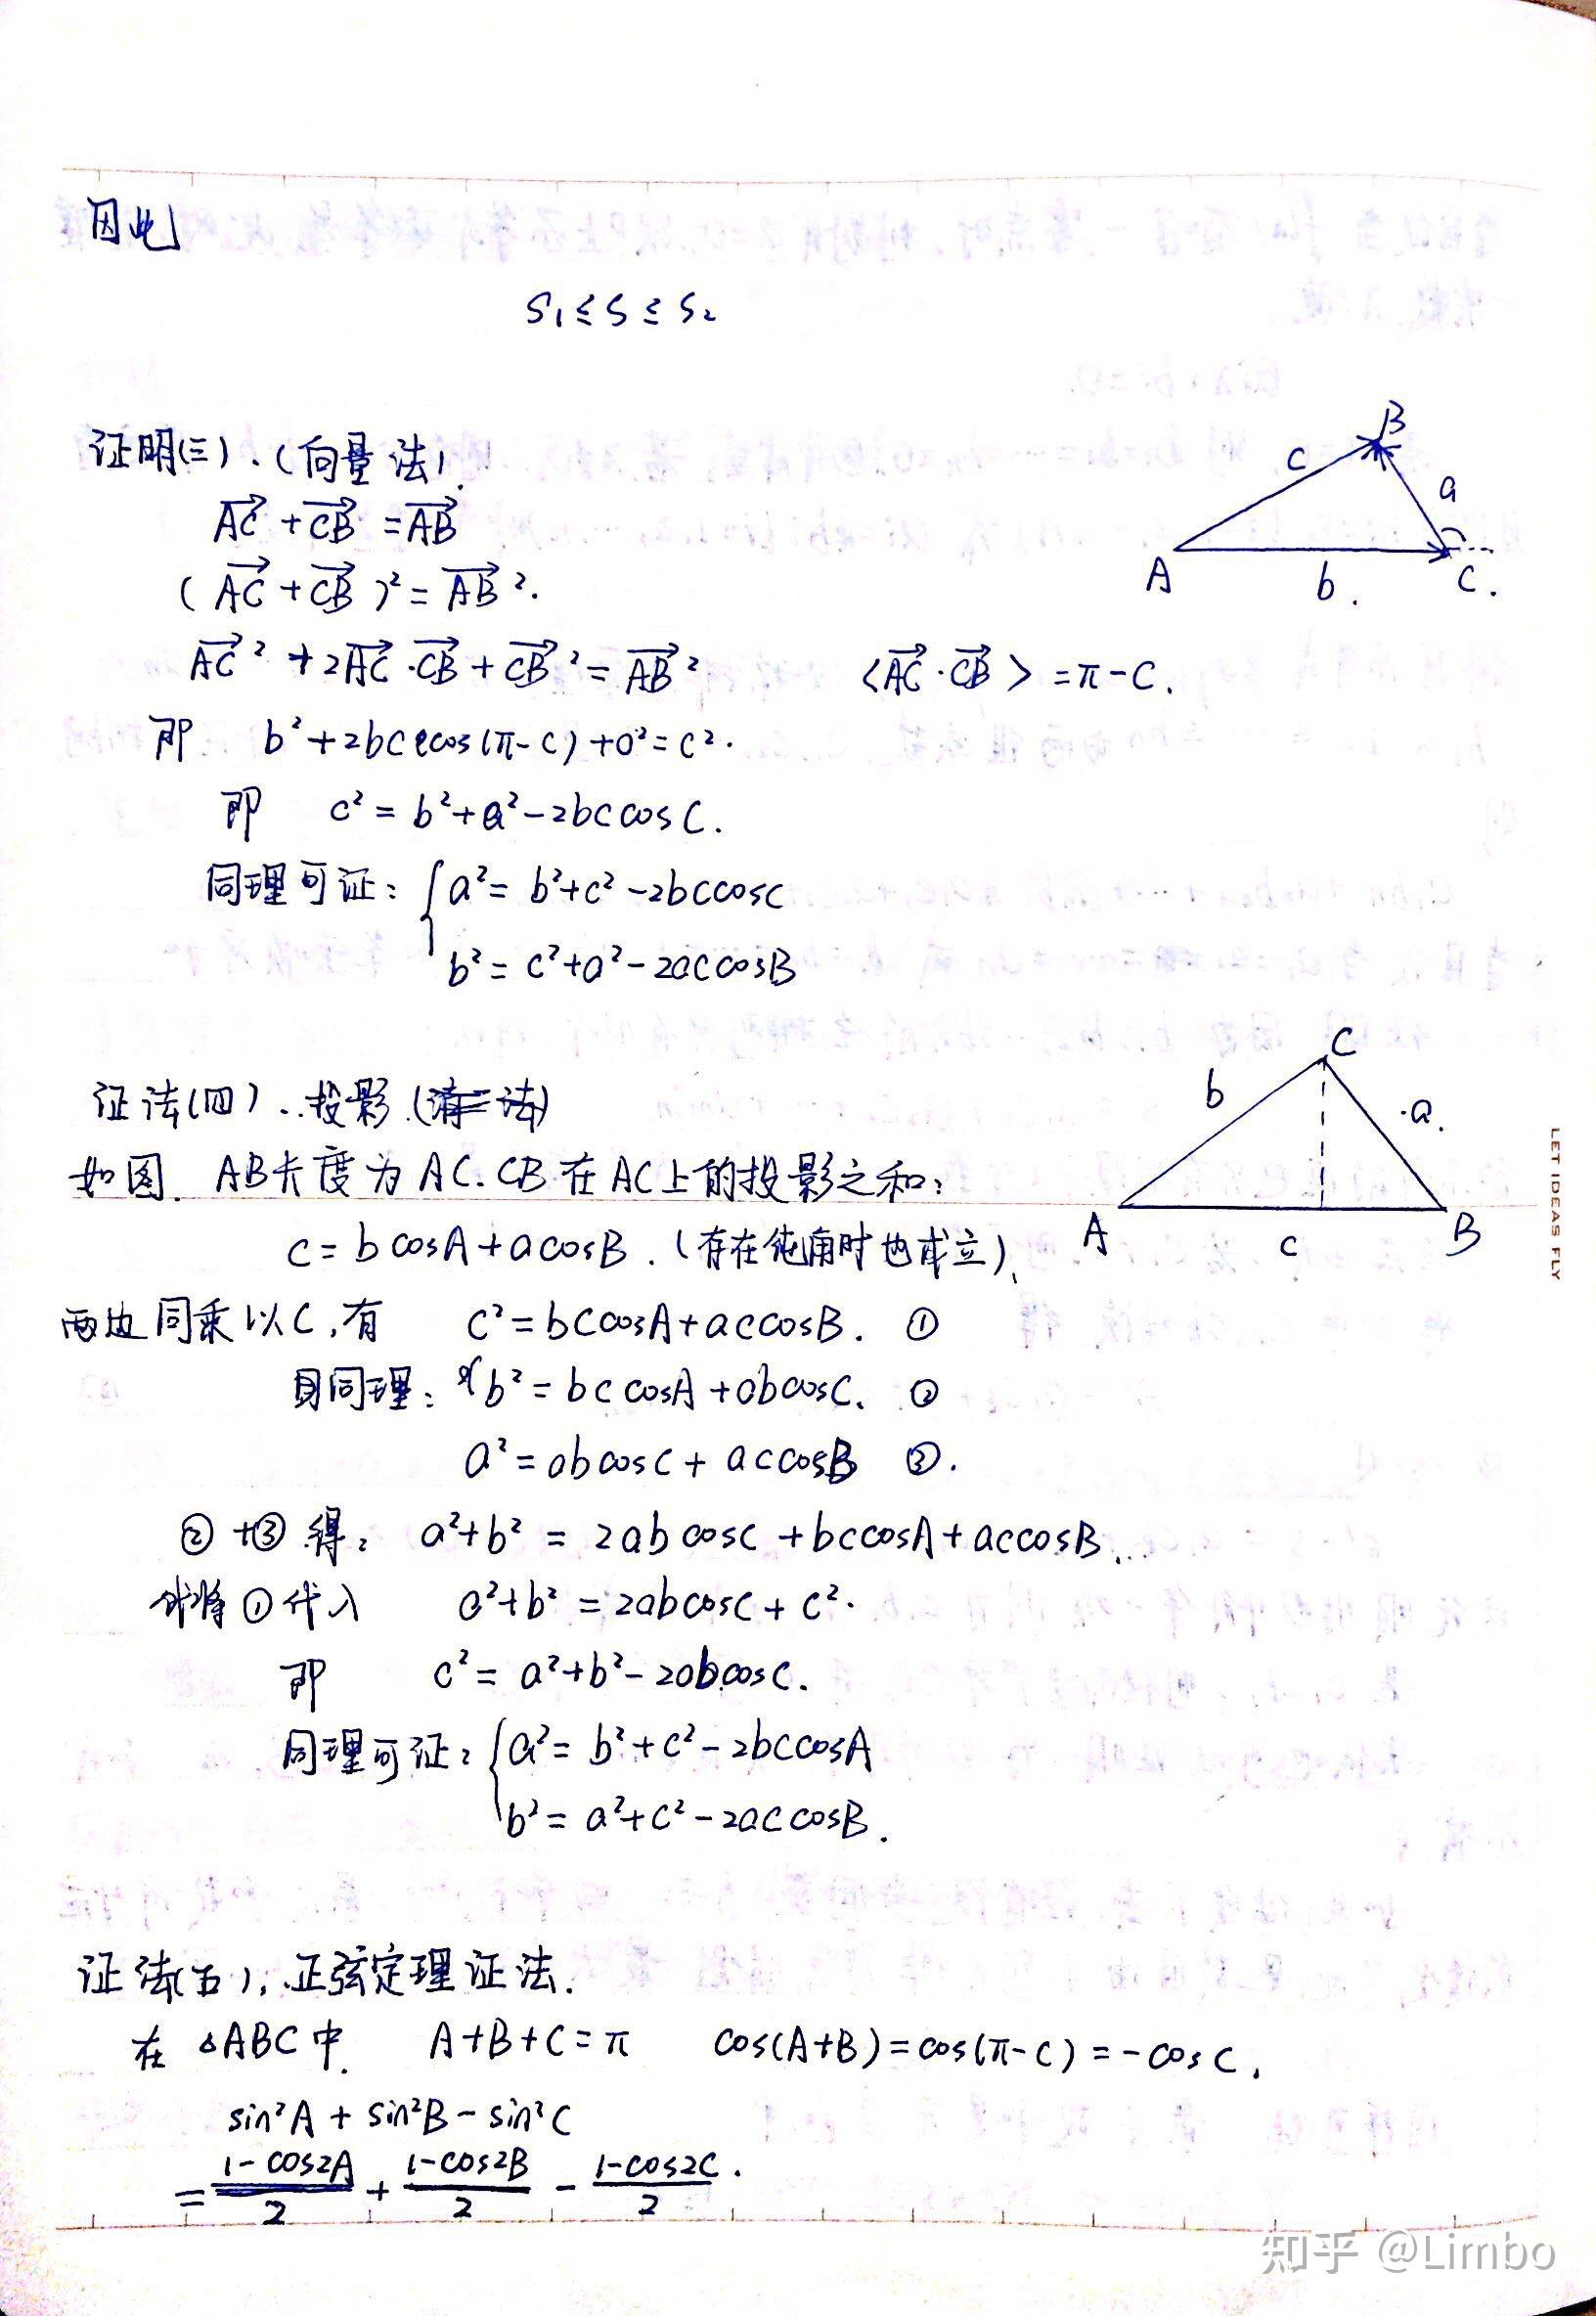 因此
S₁ ≤ S ≤ S₂
证明(三).(向量法).
B
c
a
A
b.
C.
AC→ + CB→ = AB→
(AC→ + CB→)² = AB→².
AC→² + 2AC→·CB→ + CB→² = AB→² <AC→·CB→> = π-C.
即 b²+2bc cos(π-C)+a²=c².
即 c² = b²+a²-2bccosC.
同理可证: { a² = b²+c²-2bccosC
b² = c²+a²-2accosB
证法(四)..投影.
C
b
a.
A
c
B
如图. AB长度为AC.CB在AC上的投影之和:
c = bcosA+acosB.(存在钝角时也成立).
两边同乘以C,有 c²=bccosA+accosB. ①
同理: b²=bccosA+abcosC. ②
a²=abcosC+accosB ③.
②+③得: a²+b² = 2abcosC+bccosA+accosB.
将①代入 a²+b² = 2abcosC+c².
即 c² = a²+b²-2abcosC.
同理可证: { a² = b²+c²-2bccosA
b² = a²+c²-2accosB.
证法(五).正弦定理证法.
在△ABC中. A+B+C=π cos(A+B)=cos(π-C)=-cosC.
sin²A+sin²B-sin²C
= (1-cos2A)/2 + (1-cos2B)/2 - (1-cos2C)/2.
LET IDEAS FLY
知乎 @Limbo